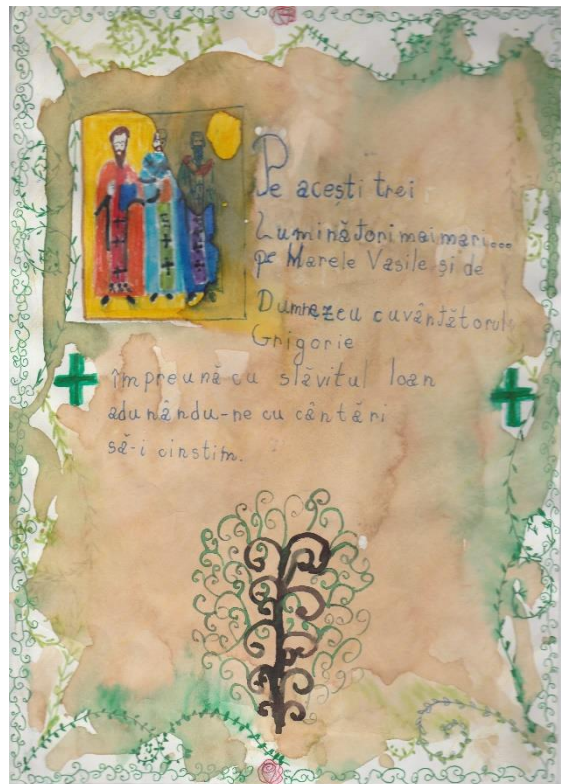 Pe acești trei
Luminători mai mari...
pe Marele Vasile și de
Dumnezeu cuvântătorul
Grigorie
împreună cu slăvitul Ioan
adunându-ne cu cântări
să-i cinstim.